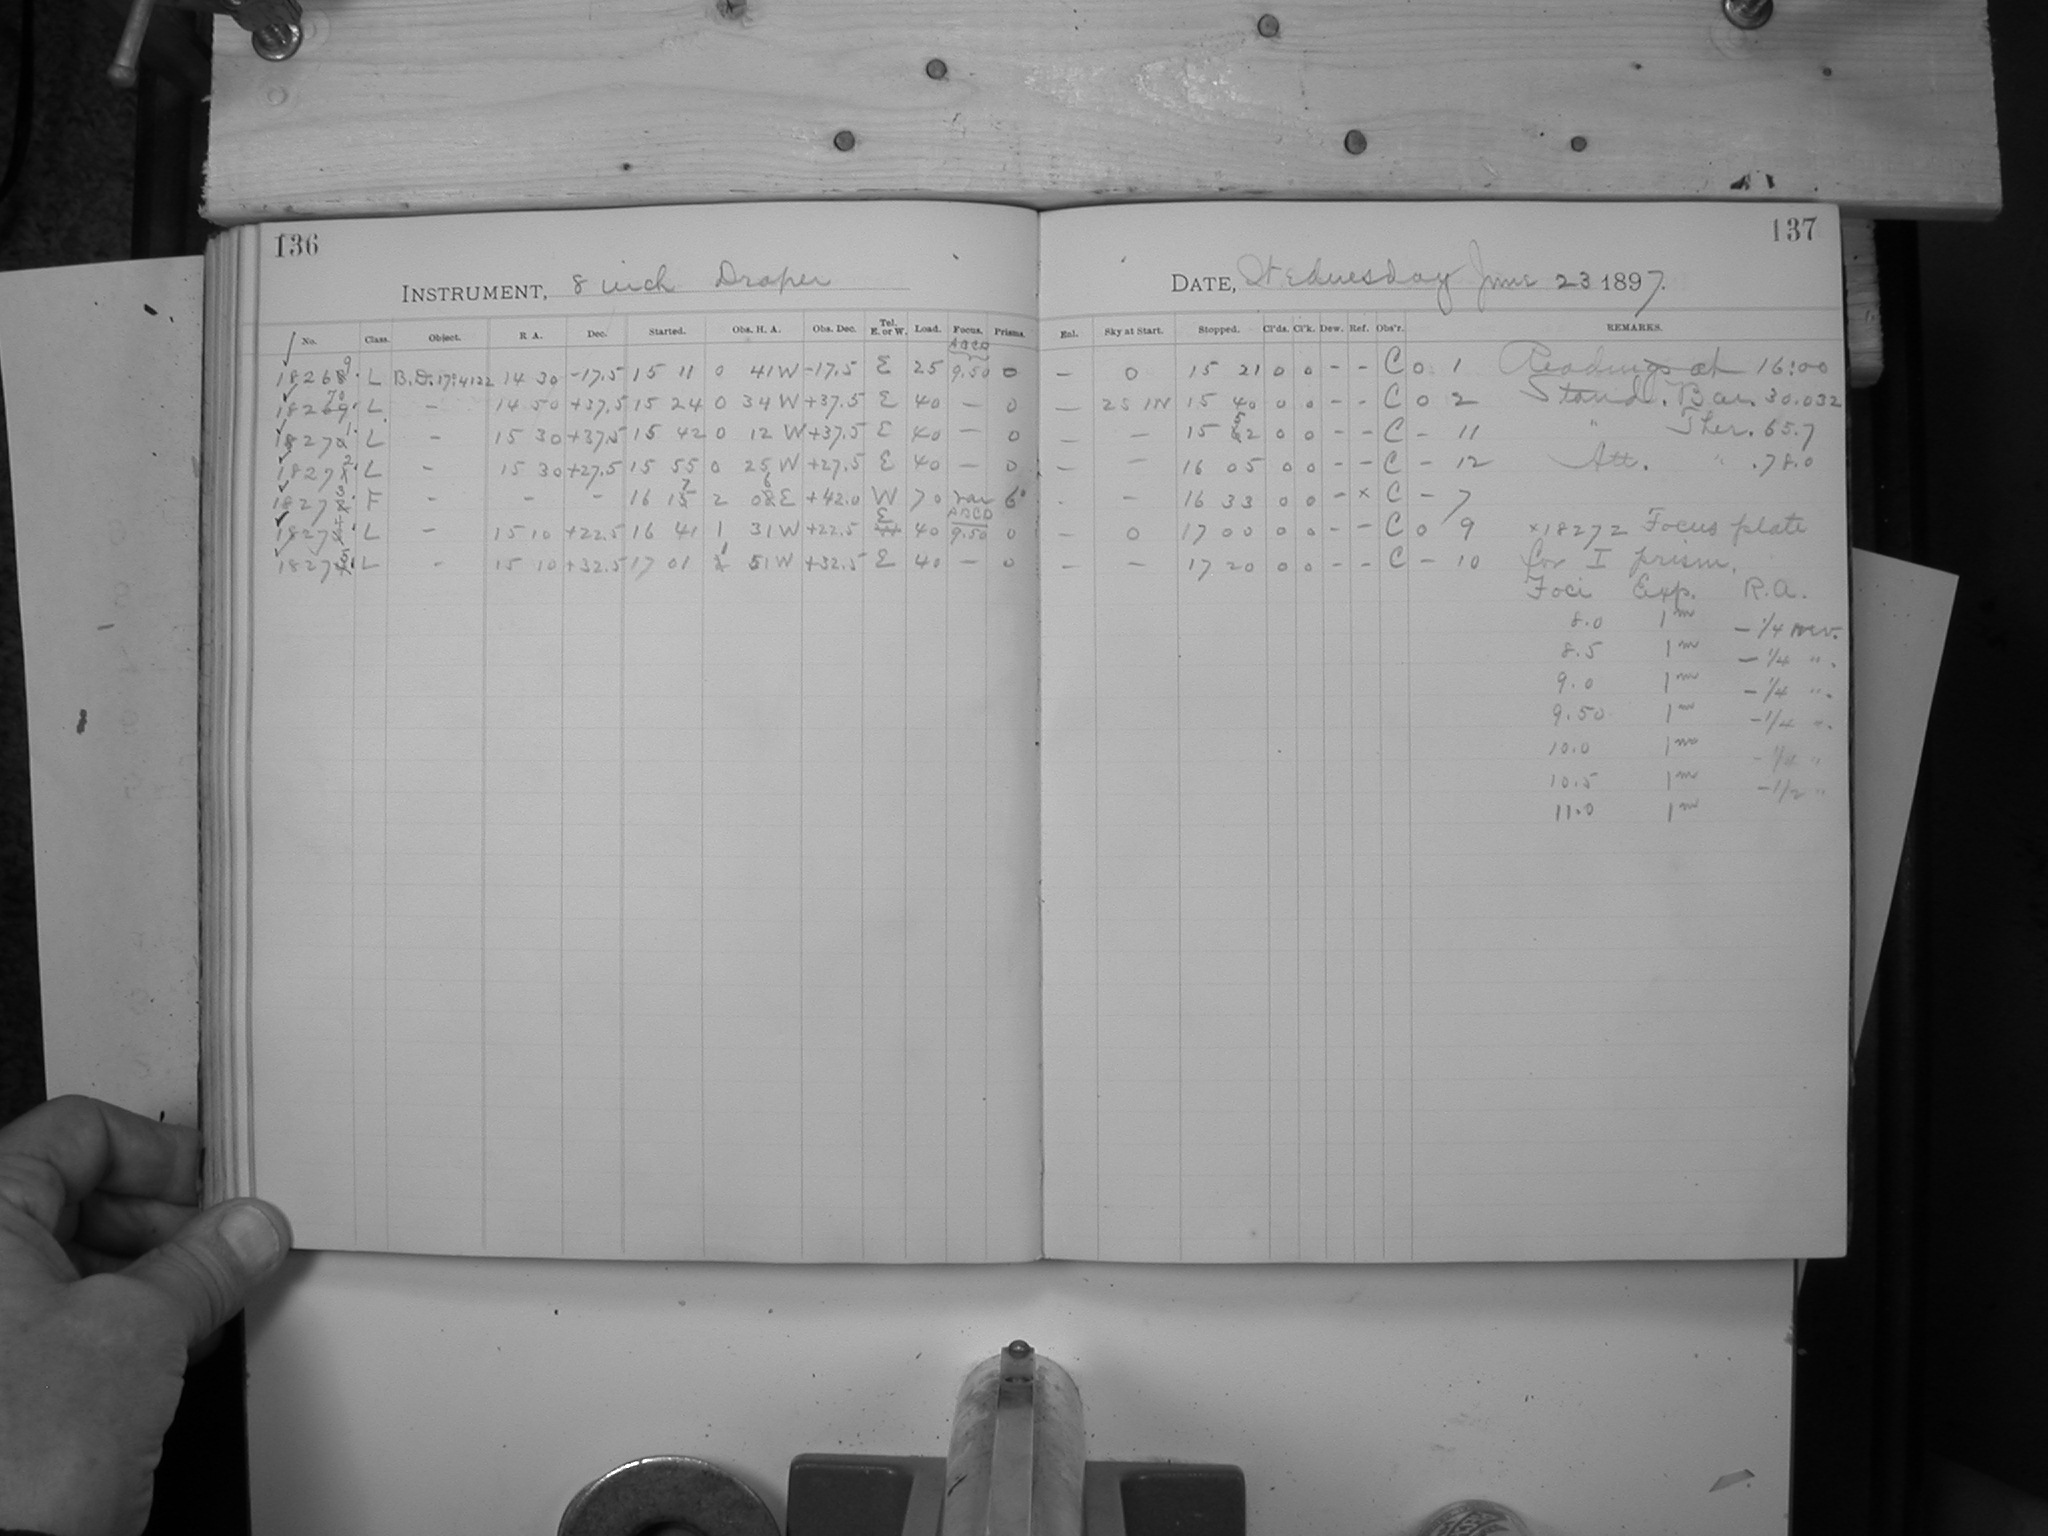 136
137
INSTRUMENT, 8 inch Draper
DATE, Wednesday June 23 1897.
No. Class. Object. R A. Dec. Started. Obs. H. A. Obs. Dec. Tel. E. or W. Load. Focus. Prisms. Enl. Sky at Start. Stopped. Cl'ds. Cl'k. Dew. Ref. Obs'r. REMARKS.
18269. L B.D. 17°4122 14 30 -17.5 15 11 0 41 W -17.5 E 25 ABCD 9.50 0 — 0 15 21 0 0 - - C 0 1 Readings at 16:00
18270. L - 14 50 +37.5 15 24 0 34 W +37.5 E 40 — 0 — 25 IN 15 40 0 0 - - C 0 2 Stand. Bar. 30.032
18271. L - 15 30 +37.5 15 42 0 12 W +37.5 E 40 — 0 — — 15 52 0 0 - - C - 11 " Ther. 65.7
18272. L - 15 30 +27.5 15 55 0 25 W +27.5 E 40 — 0 — — 16 05 0 0 - - C - 12 Att. " .78.0
18273. F - - - 16 17 2 06 E +42.0 W 70 var 6° - - 16 33 0 0 - x C - 7
18274. L - 15 10 +22.5 16 41 1 31 W +22.5 E 40 ABCD 9.50 0 — 0 17 00 0 0 - - C 0 9 x18272 Focus plate
18275. L - 15 10 +32.5 17 01 1 51 W +32.5 E 40 — 0 — — 17 20 0 0 - - C - 10 for I prism.
Foci Exp. R.A.
8.0 1m -1/4 rev.
8.5 1m -1/4 ".
9.0 1m -1/4 ".
9.50 1m -1/4 ".
10.0 1m -1/4 "
10.5 1m -1/2 "
11.0 1m